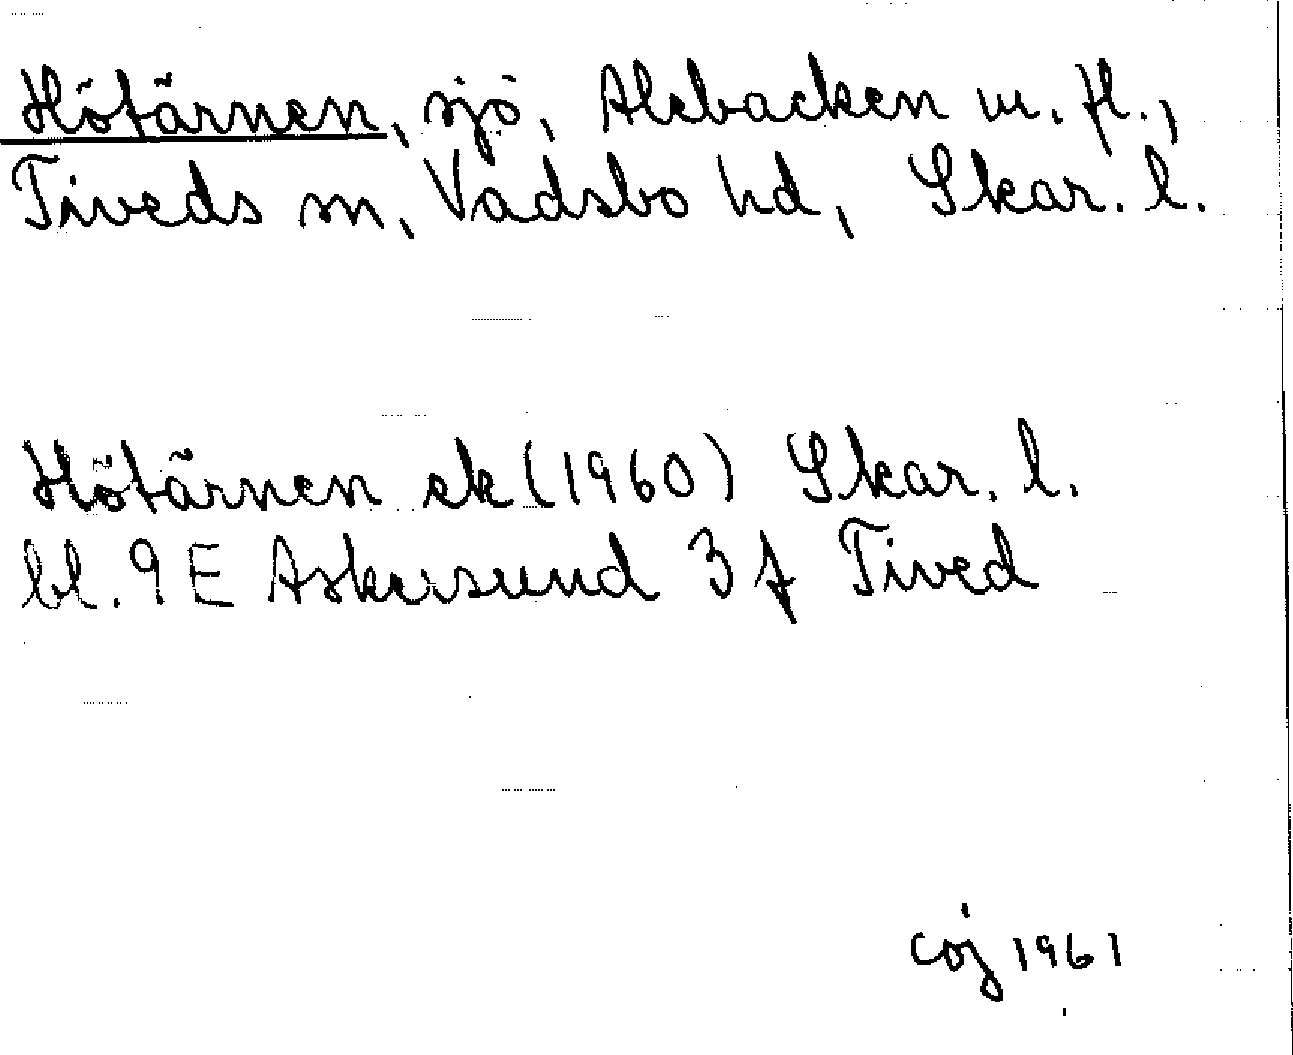 Hötärnen, sjö, Alebacken m. fl.,
Tiveds sn, Vadsbo hd, Skar. l.
Hötärnen ek (1960) Skar. l.
bl. 9 E Askersund 3 f Tived
coj 1961